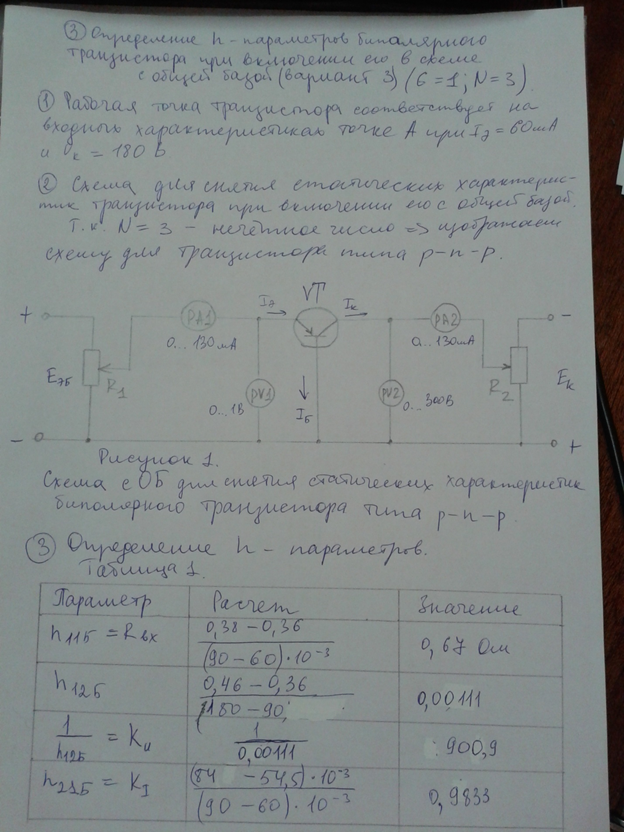 ③ Определение h - параметров биполярного
транзистора при включении его в схеме
с общей базой (вариант 3) (G=1; N=3).
① Рабочая точка транзистора соответствует на
входных характеристиках точке А при Iэ = 60 мА
и Uк = 180 В
② Схема для снятия статических характерис-
тик транзистора при включении его с общей базой.
Т.к. N = 3 - нечётное число => изображаем
схему для транзистора типа p-n-p.
VT
+ PA1 Iэ Iк PA2 -
0...130мА 0...130мА
Eэб R1 PV1 PV2 R2 Eк
0...1В Iб 0...300В
- +
Рисунок 1.
Схема с ОБ для снятия статических характеристик
биполярного транзистора типа p-n-p.
③ Определение h - параметров.
Таблица 1.
Параметр Расчет Значение
h11б = Rвх (0,38-0,36)/((90-60)·10⁻³) 0,67 Ом
h12б (0,46-0,36)/(180-90) 0,00111
1/h12б = Ku 1/0,00111 900,9
h21б = KI ((84 -54,5)·10⁻³)/((90-60)·10⁻³) 0,9833